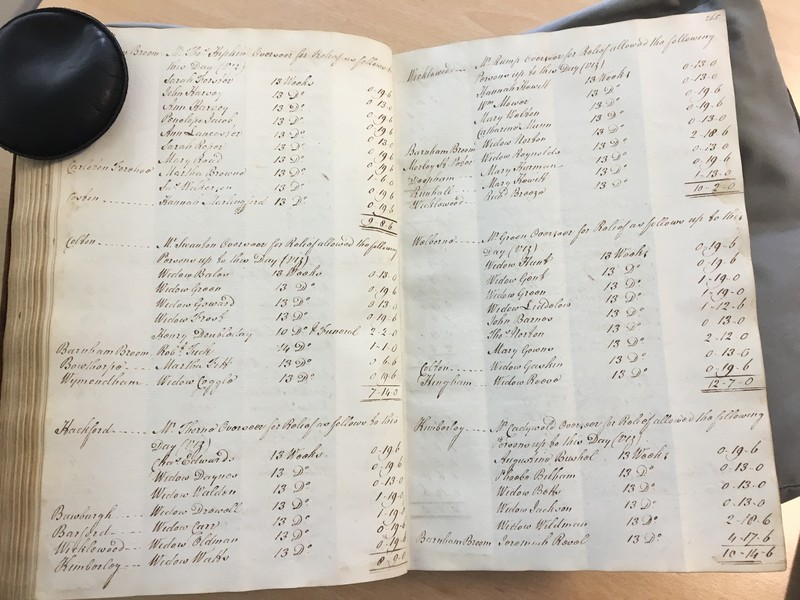 Broom Mr Thos. Hipkin Overseer for Relief as follows to
this Day (Viz)
Sarah Forster 13 Weeks 0-19-6
John Harvey 13 Do 0-13-0
Ann Harvey 13 Do 0-19-6
Penelope Jacob 13 Do 0-19-6
Ann Lancaster 13 Do
Sarah Roper 13 Do
Mary Read 13 Do
Carleton Forehoe Martha Browne 13 Do 1-6-0
Wilkerson 13 Do 0-19-6
Coston Hannah 13 Do 0-19-6
9-8-6
Colton Mr Swanton Overseer for Relief allowed the following
Persons up to this Day (Viz)
Widow Bales 13 Weeks 0-13-0
Widow Green 13 Do 0-19-6
Widow Goward 13 Do 0-13-0
Widow Frost 13 Do 0-19-6
Henry Doubleday 10 Do & Funeral 2-2-0
Barnham Broom Robt. Tuck 14 Do 1-1-0
Bowthorpe Martha 13 Do 0-6-6
Wymondham Widow 13 Do 0-19-6
7-14-0
Hackford Mr Thorne Overseer for Relief as follows to this
Day (Viz)
Chas. Edwards 13 Weeks 0-19-6
Widow Daynes 13 Do 0-19-6
Widow Walden 13 Do 0-13-0
Bawburgh Widow Drewell 13 Do 1-19-0
Barford Widow Carr 13 Do
Wicklewood Widow Oldman 13 Do
Kimberley Widow Watts 13 Do 0-19-6
8-9-0
265
Wicklewood Mr Rump Overseer for Relief allowed the following
Persons up to this Day (Viz)
Hannah Howell 13 Weeks 0-13-0
Wm Mower 13 Do 0-13-0
Mary Walden 13 Do 0-19-6
Catharine Munn 13 Do 0-19-6
Widow Norton 13 Do 0-13-0
Barnham Broom Widow Reynolds 13 Do 2-18-6
Morley St Peter Mary Harman 13 Do 0-13-0
Deopham Mary Howitt 13 Do 0-19-6
Runhall Richd Breeze 13 Do 1-13-0
Wicklewood
10-2-0
Welborne Mr Green Overseer for Relief as follows up to this
Day (Viz)
Widow Hunt 13 Weeks 0-19-6
Widow Gent 13 Do 0-19-6
Widow Green 13 Do 1-19-0
Widow Liddelow 13 Do 1-19-0
John Barnes 13 Do 1-12-6
Thos Norton 13 Do 0-13-0
Mary Gowns 13 Do 2-12-0
Colton Widow Gaskin 13 Do 0-13-0
Hingham Widow Reeve 13 Do 0-19-6
12-7-0
Kimberley Mr Cadywold Overseer for Relief allowed the following
Persons up to this Day (Viz)
Augustine Bushel 13 Weeks 0-19-6
Phoebe Pelham 13 Do 0-13-0
Widow Betts 13 Do 0-13-0
Widow Jackson 13 Do 0-13-0
Widow Wildman 13 Do 2-18-6
Barnham Broom Jeremiah Reval 13 Do 4-17-6
10-14-6